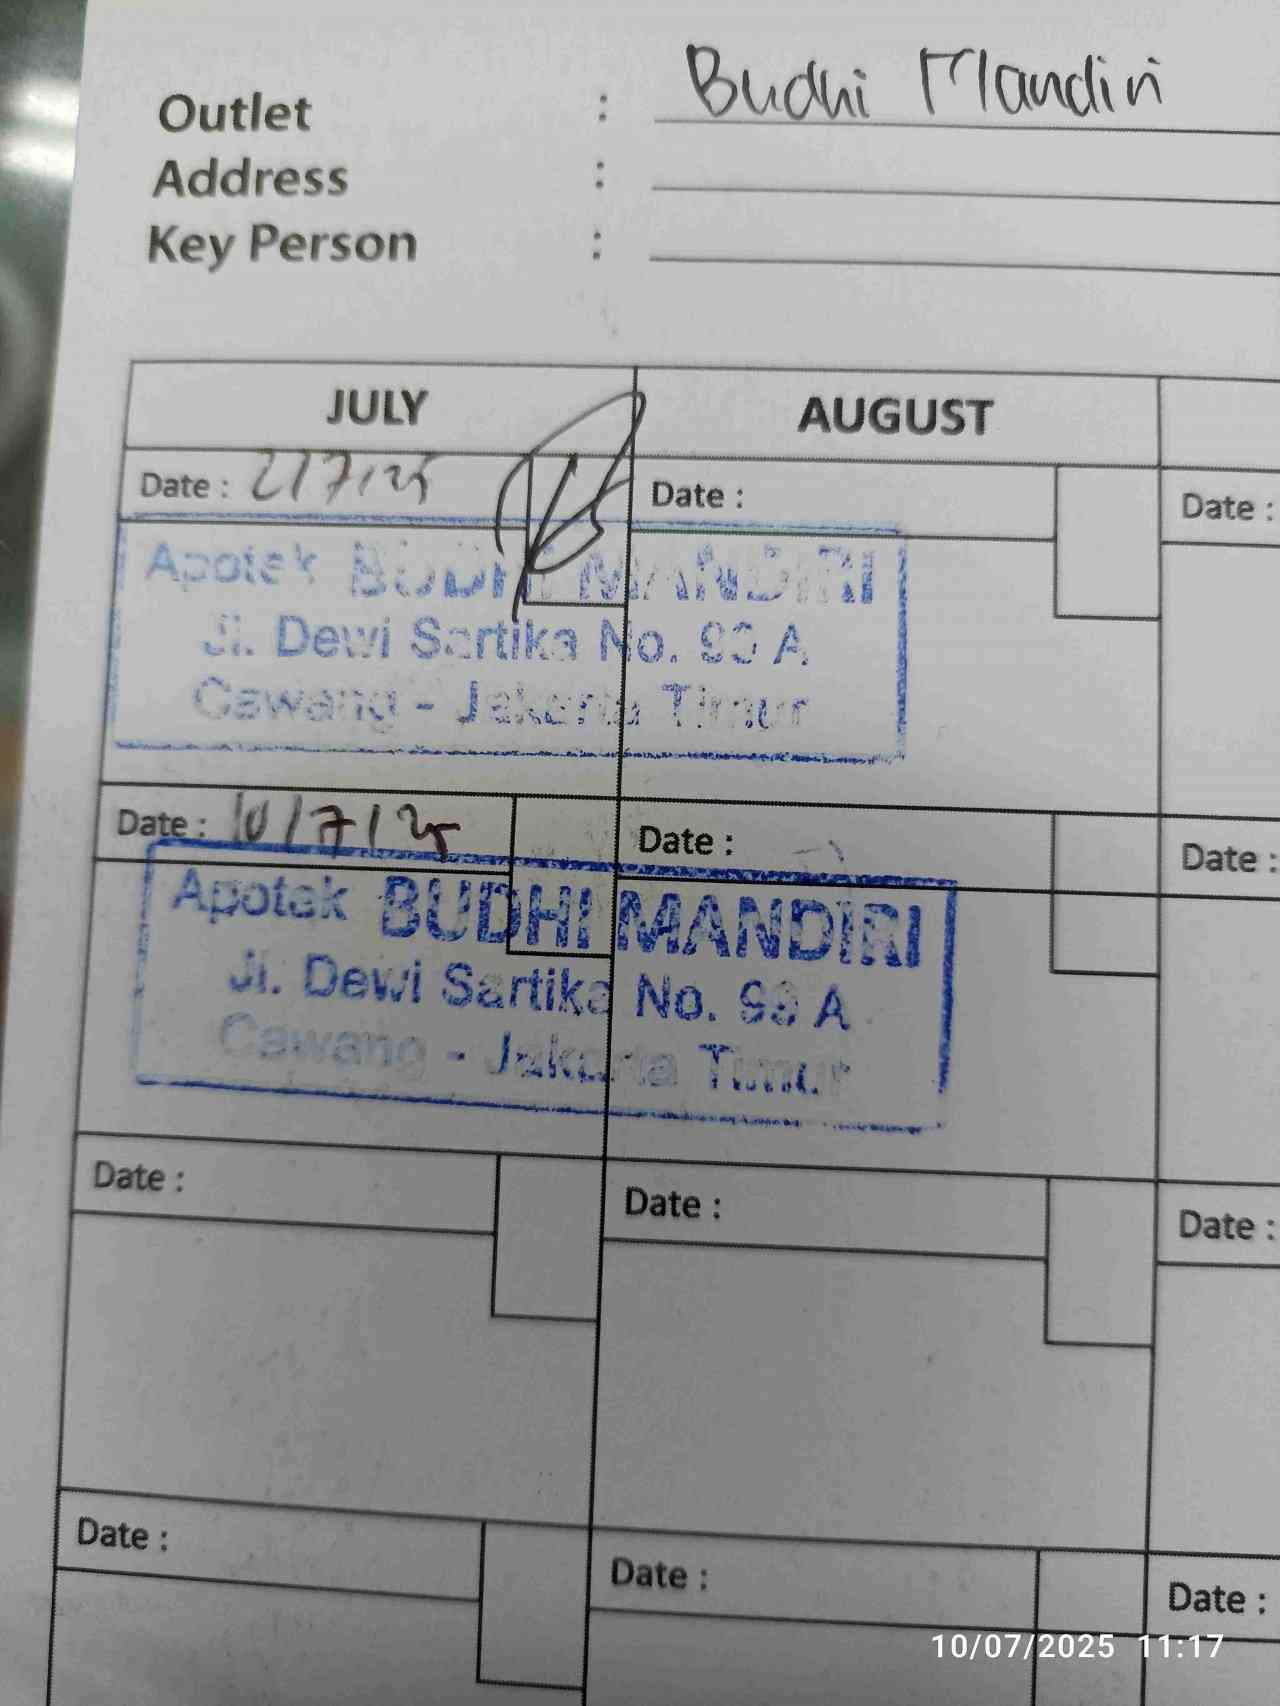 Outlet : Budhi Mandiri
Address :
Key Person :
JULY AUGUST
Date : 2/7/25 Date : Date :
Apotek BUDHI MANDIRI
Jl. Dewi Sartika No. A
Cawang - Jakarta Timur
Date : 10/7/25 Date : Date :
Apotek BUDHI MANDIRI
Jl. Dewi Sartika No. A
Cawang - Jakarta Timur
Date : Date : Date :
Date : Date : Date :
10/07/2025 11:17